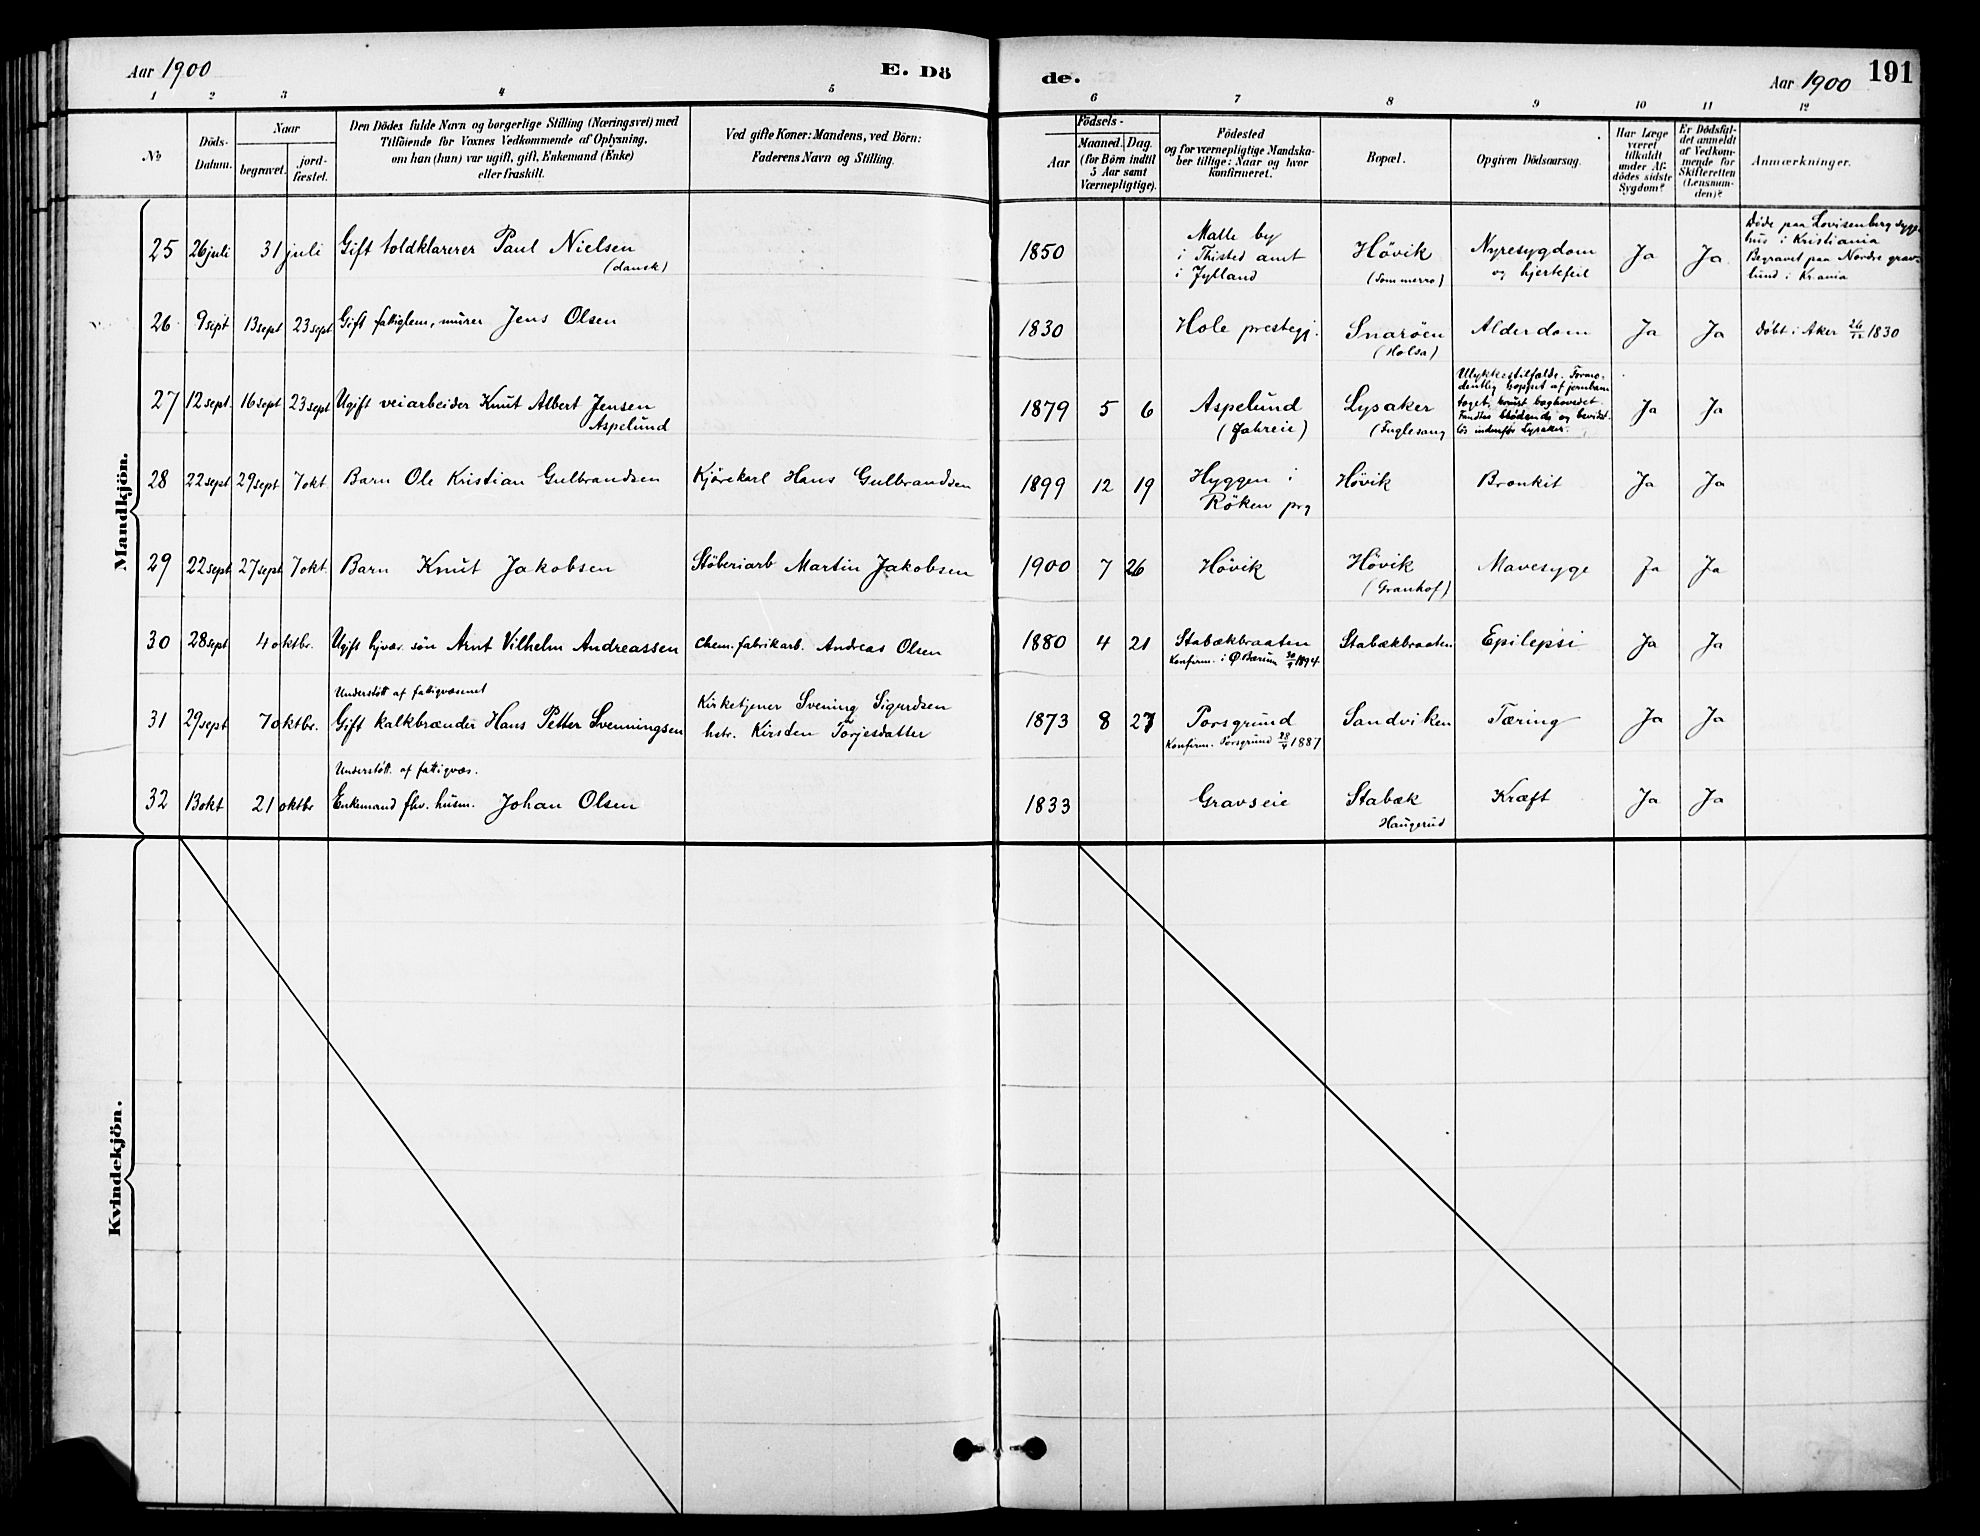 Aar 1900
E. Dö
de.
Aar 1900
191
1 2 3 4 5 6 7 8 9 10 11 12
No
Döds-
Datum.
Naar
begravet.
jord-
fæstet.
Den Dödes fulde Navn og borgerlige Stilling (Næringsvei) med
Tilföiende for Voxnes Vedkommende af Oplysning,
om han (hun) var ugift, gift, Enkemand (Enke)
eller fraskilt.
Ved gifte Koner: Mandens, ved Börn:
Faderens Navn og Stilling.
Födsels-
Aar
Maaned. Dag.
(for Börn indtil
5 Aar samt
Værnepligtige).
Födested
og for værnepligtige Mandska-
ber tillige: Naar og hvor
konfirmeret.
Bopæl.
Opgiven Dödsaarsag.
Har Læge
været
tilkaldt
under Af-
dödes sidste
Sygdom?
Er Dödsfal-
det anmeldt
af Vedkom-
mende for
Skifteretten
(Lensman-
den)?
Anmærkninger.
Mandkjön.
25 26 juli 31 juli Gift toldklarerer Paul Nielsen
(dansk)
1850
Malle by
i Thisted amt
i Jylland
Høvik
(Sommerro)
Nyresygdom
og hjertefeil
Ja Ja
Døde paa Lovisenberg syge-
hus i Kristiania
Begravet paa Nordre grav-
lund i Kr.ania
26 9 sept 13 sept 23 sept Gift fattiglem, murer Jens Olsen
1830 Hole prestegj. Snarøen
(Holsa)
Alderdom Ja Ja Døbt i Aker 26/12 1830
27 12 sept. 16 sept 23 sept Ugift veiarbeider Knut Albert Jensen
Aspelund
1879 5 6 Aspelund
(Jahreie)
Lysaker
(Fuglesang
Ulykkestilfælde. Formo-
dentlig hoppet af jernbane
toget, knust baghovedet.
Fandtes blødende og bevidst-
løs indenfor Lysaker.
Ja Ja
28 22 sept 29 sept 7 okt. Barn Ole Kristian Gulbrandsen Kjørekarl Hans Gulbrandsen
1899 12 19 Hyggen i
Røken prg
Høvik Bronkit Ja Ja
29 22 sept 27 sept 7 okt. Barn Knut Jakobsen Støberiarb Martin Jakobsen
1900 7 26 Høvik Høvik
(Granhof)
Mavesyge Ja Ja
30 28 sept 4 oktbr. Ugift hjvær. søn Arnt Vilhelm Andreassen Chem. fabrikarb. Andreas Olsen
1880 4 21 Stabækbraaten
Konfirm. i Ø Bærum 30/9 1894.
Stabækbraaten Epilepsi Ja Ja
Understøtt af fattigvæsenet
31 29 sept 7 oktbr. Gift kalkbrænder Hans Petter Svenningsen
Kirketjener Svening Sigurdsen
hstr. Kirsten Torjesdatter
1873 8 27 Porsgrund
Konfirm. Porsgrund 28/4 1887
Sandviken Tæring Ja Ja
Understøtt. af fattigvæs.
32 13 okt 21 oktbr Enkemand fhv. husm. Johan Olsen
1833 Gravseie Stabæk
Haugerud
Kræft Ja Ja
Kvindekjön.